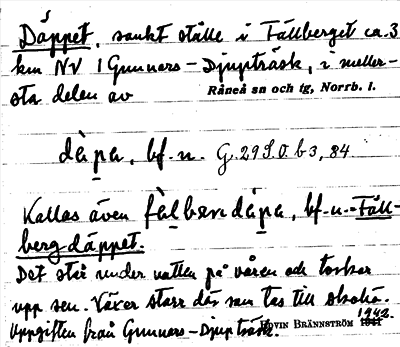 Däppet, sankt ställe i Fällberget ca. 3
km NV l Gunnars-Djupträsk, i meller-
sta delen av
Råneå sn och tg, Norrb. l.
dàpa, bf. n. G. 29 S. O. b 3, 84
Kallas även fàlbærɛdápa, bf. n. = Fäll-
bergdäppet.
Det står under vatten på våren och torkar
upp sen. Växer starr där som tas till skohö.
Uppgiften från Gunnars-Djupträsk.
EDVIN BRÄNNSTRÖM 1942.
1941